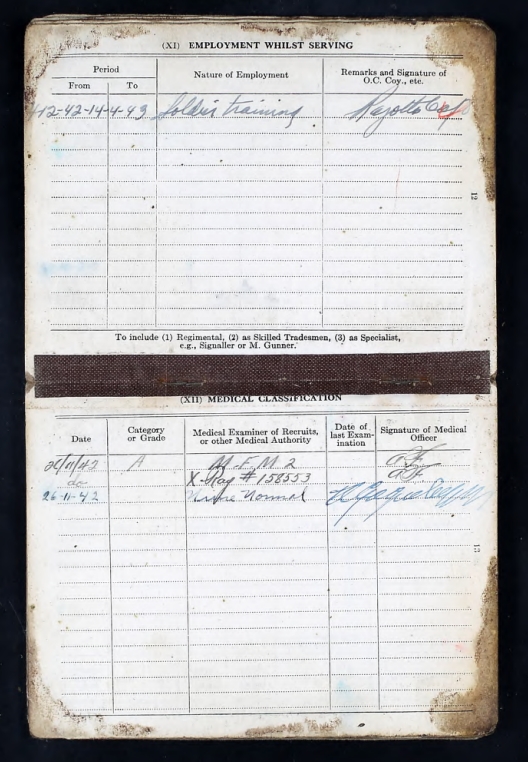 (XI) EMPLOYMENT WHILST SERVING
Period
From To
Nature of Employment
Remarks and Signature of
O.C. Coy., etc.
12-42-14-4-43 Soldier training
12
To include (1) Regimental, (2) as Skilled Tradesmen, (3) as Specialist,
e.g., Signaller or M. Gunner.
(XII) MEDICAL CLASSIFICATION
Date
Category
or Grade
Medical Examiner of Recruits,
or other Medical Authority
Date of
last Exam-
ination
Signature of Medical
Officer
26/11/42 A M.F.M 2
do X-Ray # 158553
26-11-42 Urine Normal
13